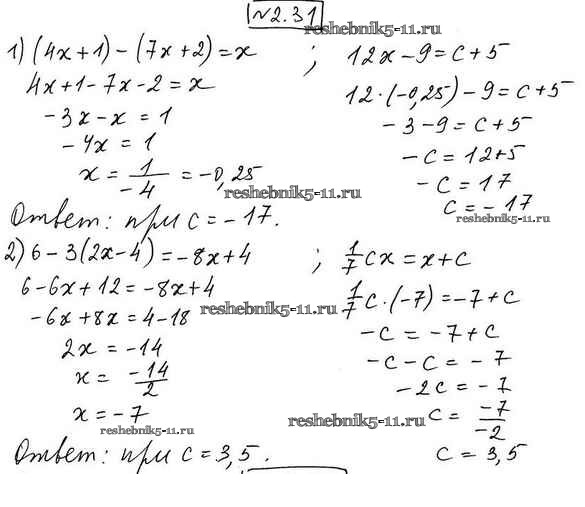 №2.31
1) (4x+1)-(7x+2)=x ; 12x-9=c+5
4x+1-7x-2=x
12·(-0,25)-9=c+5
-3x-x=1
-3-9=c+5
-4x=1
-c=12+5
x=1/-4=-0,25
-c=17
c=-17
Ответ: при c=-17.
2) 6-3(2x-4)=-8x+4 ; 1/7cx=x+c
6-6x+12=-8x+4
1/7c·(-7)=-7+c
-6x+8x=4-18
-c=-7+c
2x=-14
-c-c=-7
x=-14/2
-2c=-7
x=-7
c=-7/-2
c=3,5
Ответ: при c=3,5.
reshebnik5-11.ru
reshebnik5-11.ru
reshebnik5-11.ru
reshebnik5-11.ru
reshebnik5-11.ru
reshebnik5-11.ru